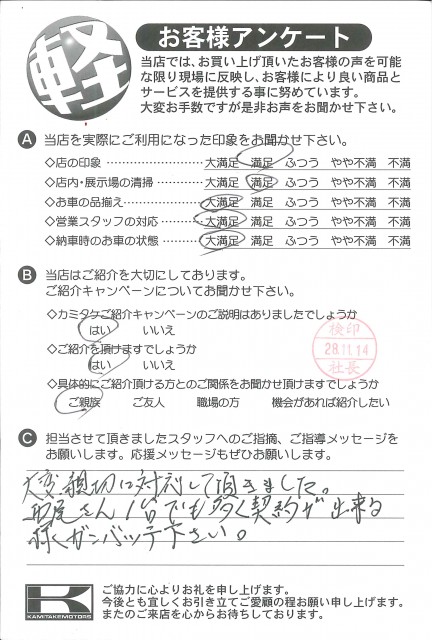 軽
お客様アンケート
当店では、お買い上げ頂いたお客様の声を可能
な限り現場に反映し、お客様により良い商品と
サービスを提供する事に努めています。
大変お手数ですが是非お声をお聞かせ下さい。
A 当店を実際にご利用になった印象をお聞かせ下さい。
◇店の印象 大満足 満足 ふつう やや不満 不満
◇店内・展示場の清掃 大満足 満足 ふつう やや不満 不満
◇お車の品揃え 大満足 満足 ふつう やや不満 不満
◇営業スタッフの対応 大満足 満足 ふつう やや不満 不満
◇納車時のお車の状態 大満足 満足 ふつう やや不満 不満
B 当店はご紹介を大切にしております。
ご紹介キャンペーンについてお聞かせ下さい。
◇カミタケご紹介キャンペーンのご説明はありましたでしょうか
はい いいえ
◇ご紹介を頂けますでしょうか
はい いいえ
検印
28.11.14
社長
◇具体的にご紹介頂ける方とのご関係をお聞かせ頂けますでしょうか
ご親族 ご友人 職場の方 機会があれば紹介したい
C 担当させて頂きましたスタッフへのご指摘、ご指導メッセージを
お願いします。応援メッセージもぜひお願いします。
大変親切に対応して頂きました。
西尾さん1台でも多く契約が出来る
様ガンバッテ下さい。
K
KAMITAKEMOTORS
ご協力に心よりお礼を申し上げます。
今後とも宜しくお引き立てご愛顧の程お願い申し上げます。
またのご来店を心からお待ちしております。